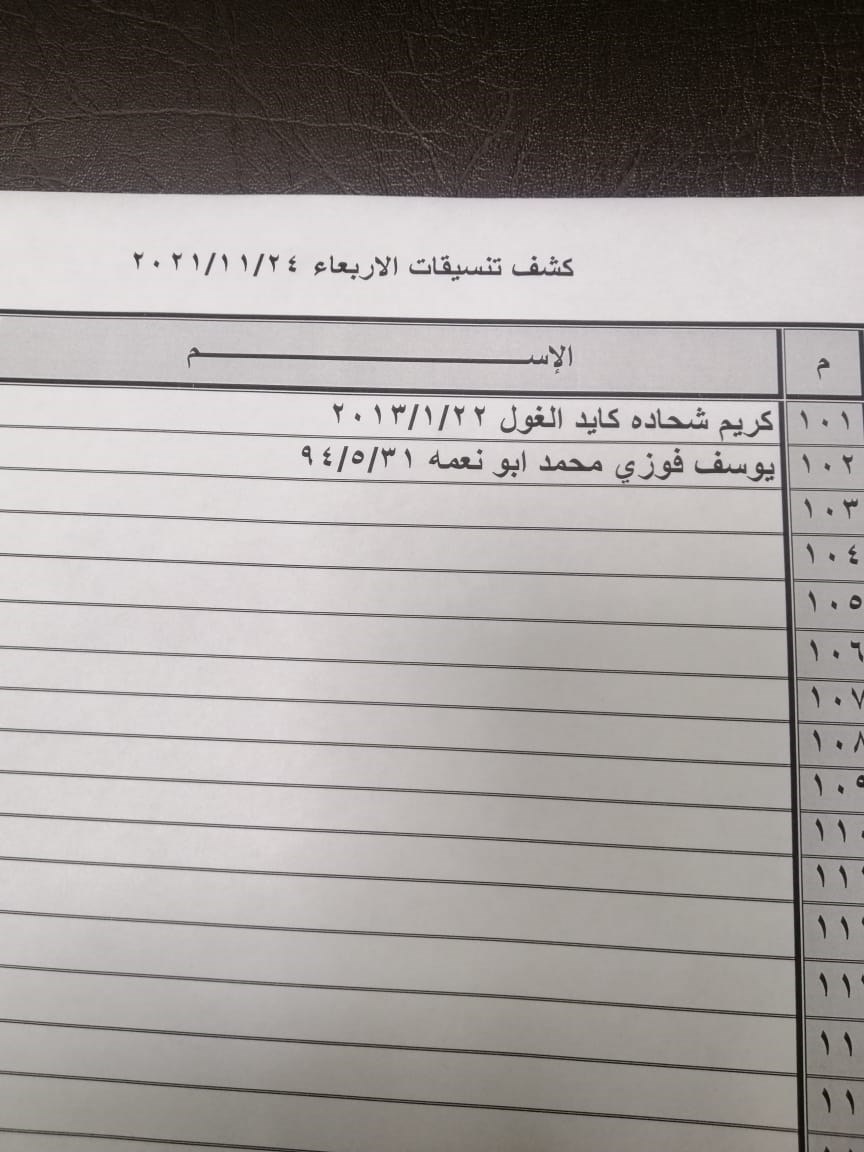 كشف تنسيقات الاربعاء ٢٠٢١/١١/٢٤
م الإســـــــــــــــــــــم
١٠١ كريم شحاده كايد الغول ٢٠١٣/١/٢٢
١٠٢ يوسف فوزي محمد ابو نعمه ٩٤/٥/٣١
١٠٣
١٠٤
١٠٥
١٠٦
١٠٧
١٠٨
١٠٩